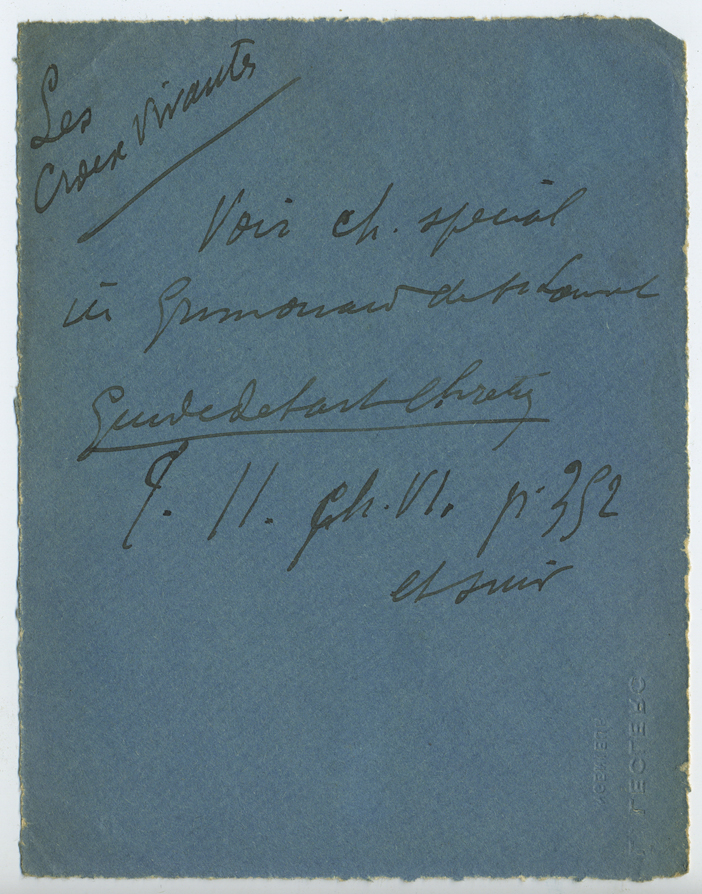 Les
Croix Vivantes
Voir ch. spécial
in Grimouard de St Laurent
Guide de l'art Chrétien
T. II. Ch. VI. p. 352
et suiv
LECLERC